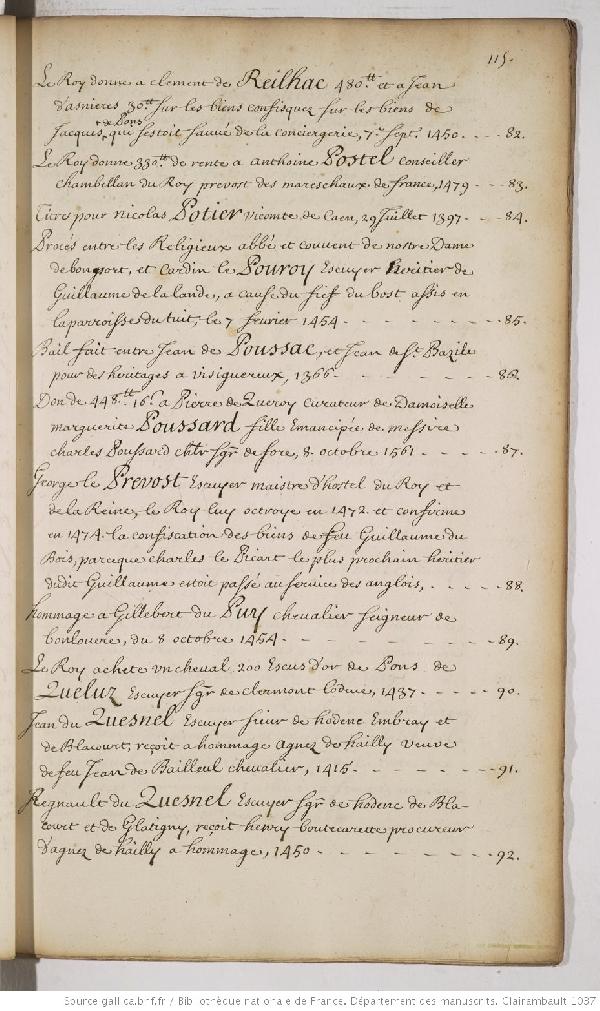 115.
Le Roy donne a clement de Reilhac 480.tt et a Jean
d'asnieres 30.tt sur les biens confisquez sur les biens de
Jacques de Pons qui sestoit sauvé de la conciergerie, 7.e Sept. 1450. - - - 82.
Le Roy donne 330.tt de rente a anthoine Postel conseiller
chambellan du Roy prevost des mareschaux de france, 1479 - - - 83.
Titre pour nicolas Potier vicomte de Caen, 29 Juillet 1397 - - - 84.
Procés entre les Religieux abbé et couvent de nostre Dame
de bonport, et Cardin le Pouroy Escuyer heritier de
Guillaume de la lande, a cause du fief du bost assis en
la parroisse du tuit, le 7 fevrier 1454 - - - - - - - 85.
Bail fait entre Jean de Poussac, et Jean de St Bazile
pour des heritages a visiguereux, 1366 - - - - - - - 86.
Don de 448.tt 16.s a Pierre de Queroy curateur de Damoiselle
marguerite Poussard fille Emancipée de messire
charles Poussard chlr sgr de fore, 8. octobre 1561 - - - - 87.
George le Prevost Escuyer maistre d'hostel du Roy et
de la Reine, le Roy luy octroye en 1472 et confirme
en 1474 la confiscation des biens de feu Guillaume du
Bois, parce que charles le Picart le plus prochain heritier
dudit Guillaume estoit passé au service des anglois, - - - - 88.
hommage a Gillebert du Puy chevalier seigneur de
, du 8 octobre 1454 - - - - - - - - 89.
Le Roy achete un cheval 200 Escus d'or de Pons de
Queluz Escuyer sgr de clermont lodeve, 1437 - - - - - 90.
Jean du Quesnel Escuyer sieur de hodenc Embray et
de Blacourt, reçoit a hommage agnez de hailly veuve
de feu Jean de Bailleul chevalier, 1415 - - - - - - - 91.
Regnault du Quesnel Escuyer sgr de hodenc de Bla-
court et de Glatigny, reçoit henry procureur
d'agnez de hailly a hommage, 1450 - - - - - - - - 92.
Source gallica.bnf.fr / Bibliothèque nationale de France. Département des manuscrits. Clairambault 1037